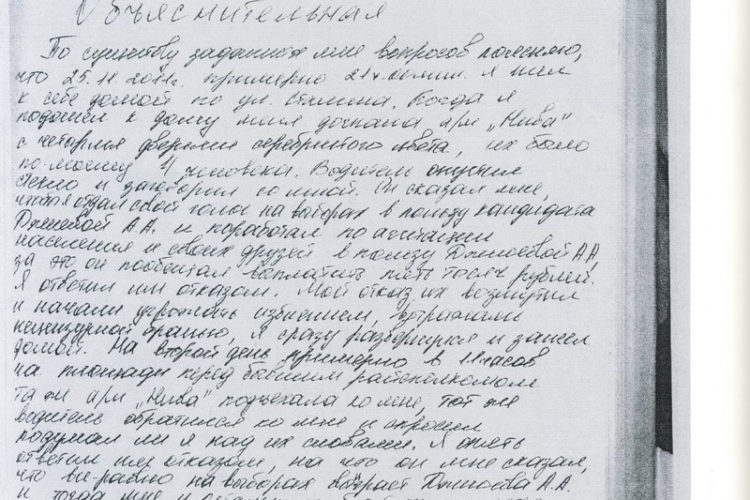 Объяснительная
По существу заданных мне вопросов поясняю,
что 25.11.2011г. примерно 21ч. я шел
к себе домой по ул. Сталина. Когда я
подошел к дому меня догнала а/м "Нива"
с четырмя дверьми серебристого цвета, их было
по-моему 4 человека. Водитель опустил
стекло и заговорил со мной. Он сказал мне,
чтоб я отдал свой голос на выборах в пользу кандидата
Джиоевой А.А. и поработал по агитации
населения и своих друзей в пользу Джиоевой А.А.
за это он пообещал выплатить пять тысяч рублей.
Я ответил им отказом. Мой отказ их возмутил
и начали угрожать избиением,
нецензурной бранью, я сразу развернулся и зашел
домой. На второй день примерно в 11 часов
на площади перед бывшим райсполкомом
та же а/м "Нива" подъехала ко мне, тот же
водитель обратился ко мне и спросил
подумал ли я над их словами. Я опять
ответил им отказом, на что он мне сказал,
что все-равно на выборах Джиоева А.А.
и тогда мне и